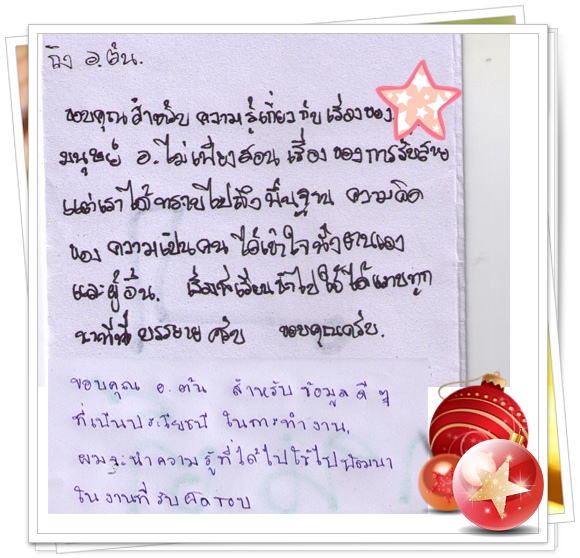 ถึง อ.ต้น.
ขอบคุณสำหรับ ความรู้เกี่ยวกับเรื่องของ
มนุษย์ อ.ไม่เพียงสอน เรื่องของการ
แต่เราได้ทราบไปถึงพื้นฐาน ความคิด
ของ ความเป็นคน ได้เข้าใจทั้งตนเอง
และผู้อื่น. เรื่องที่เรียนนำไปใช้ได้แทบทุก
นาทีที่ บรรยาย ครับ ขอบคุณครับ.
ขอบคุณ อ.ต้น สำหรับ ข้อมูลดี ๆ
ที่เป็นประโยชน์ ในการทำงาน.
ผมจะนำความรู้ที่ได้ไปใช้ไปพัฒนา
ในงานที่รับผิดชอบ